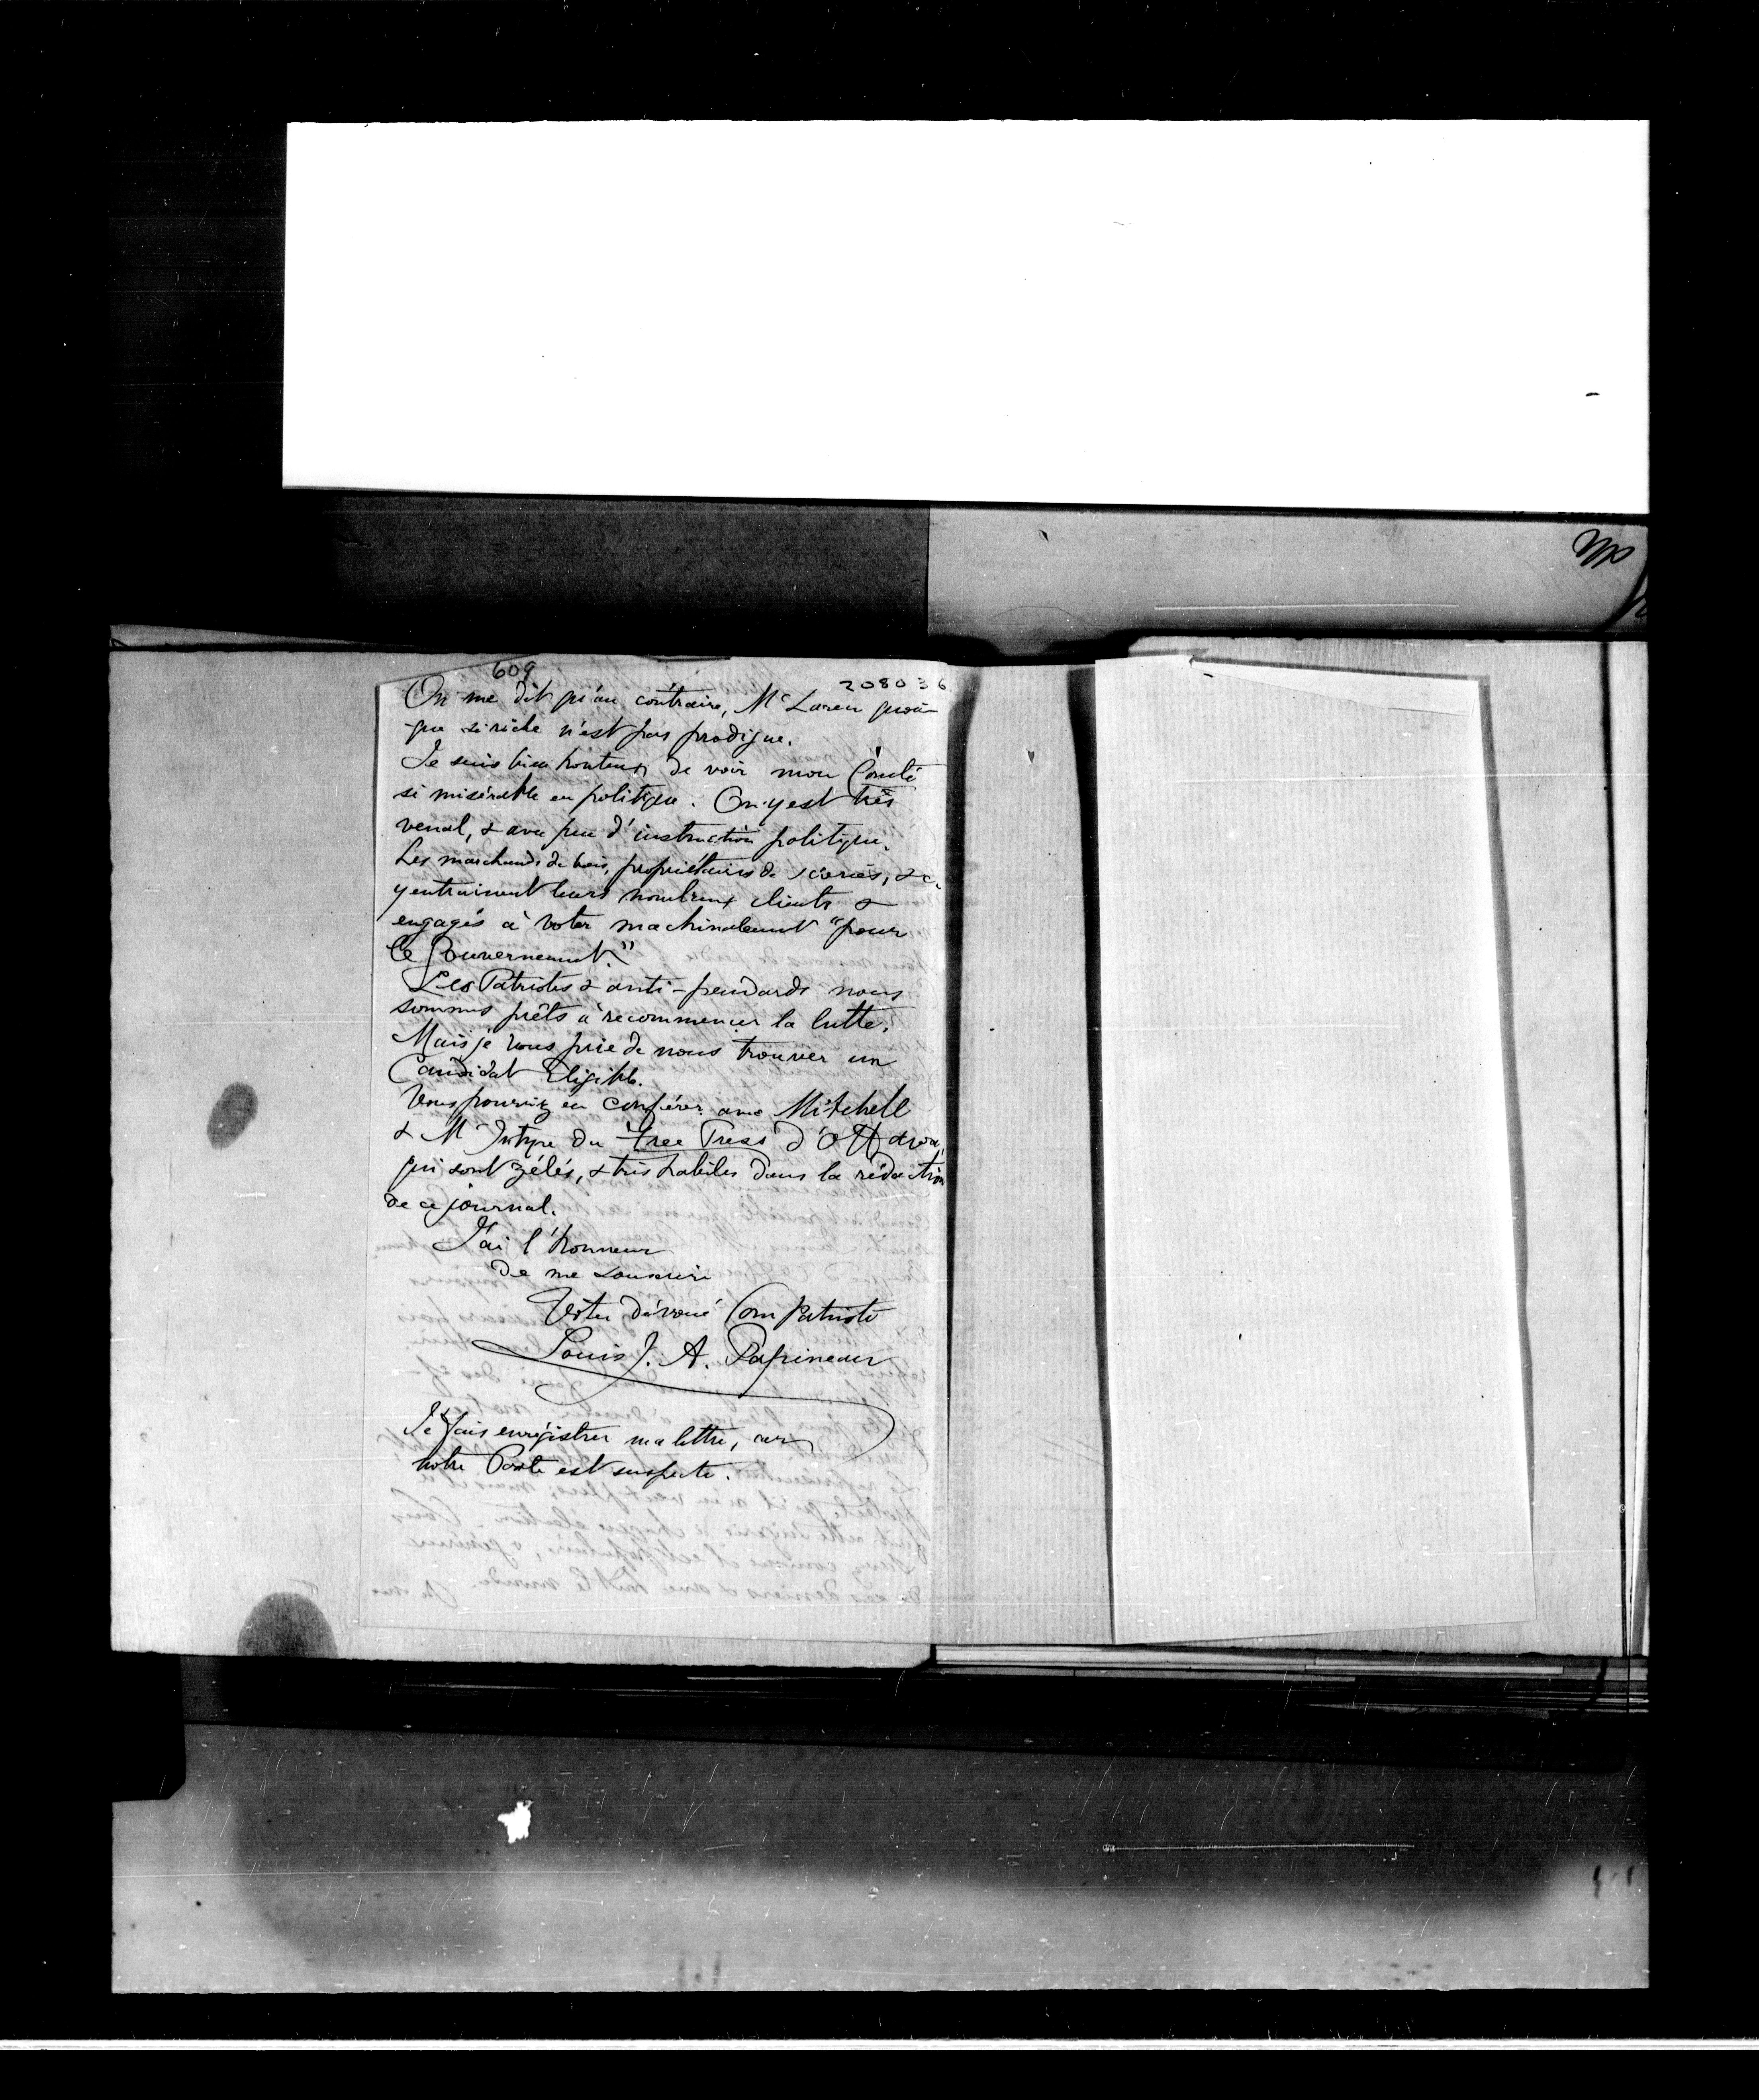 609
208036
On me dit qu'au contraire, McLaren quoi-
que si riche n'est pas prodigue.
Je suis bien honteux de voir mon Comté
si misérable en politique. On y est très
venal, & avec peu d'instruction politique.
Les marchands de bois, propriétaires de scieries, &c.
y entrainent leurs nombreux clients &
engagés à voter machinalement "pour
le Gouvernement."
Les Patriotes & anti-pendards nous
sommes prêts à recommencer la lutte.
Mais je vous prie de nous trouver un
Candidat Eligible.
Vous pourriez en conférer avec Mitchell
& McIntyre du Free Press d'Ottawa,
qui sont zélés, & très habiles dans la rédaction
de ce journal.
J'ai l'honneur
de me souscrire
Votre dévoué Compatriote
Louis J. A. Papineau
Je fais enrégistrer ma lettre, car
notre Poste est suspecte.